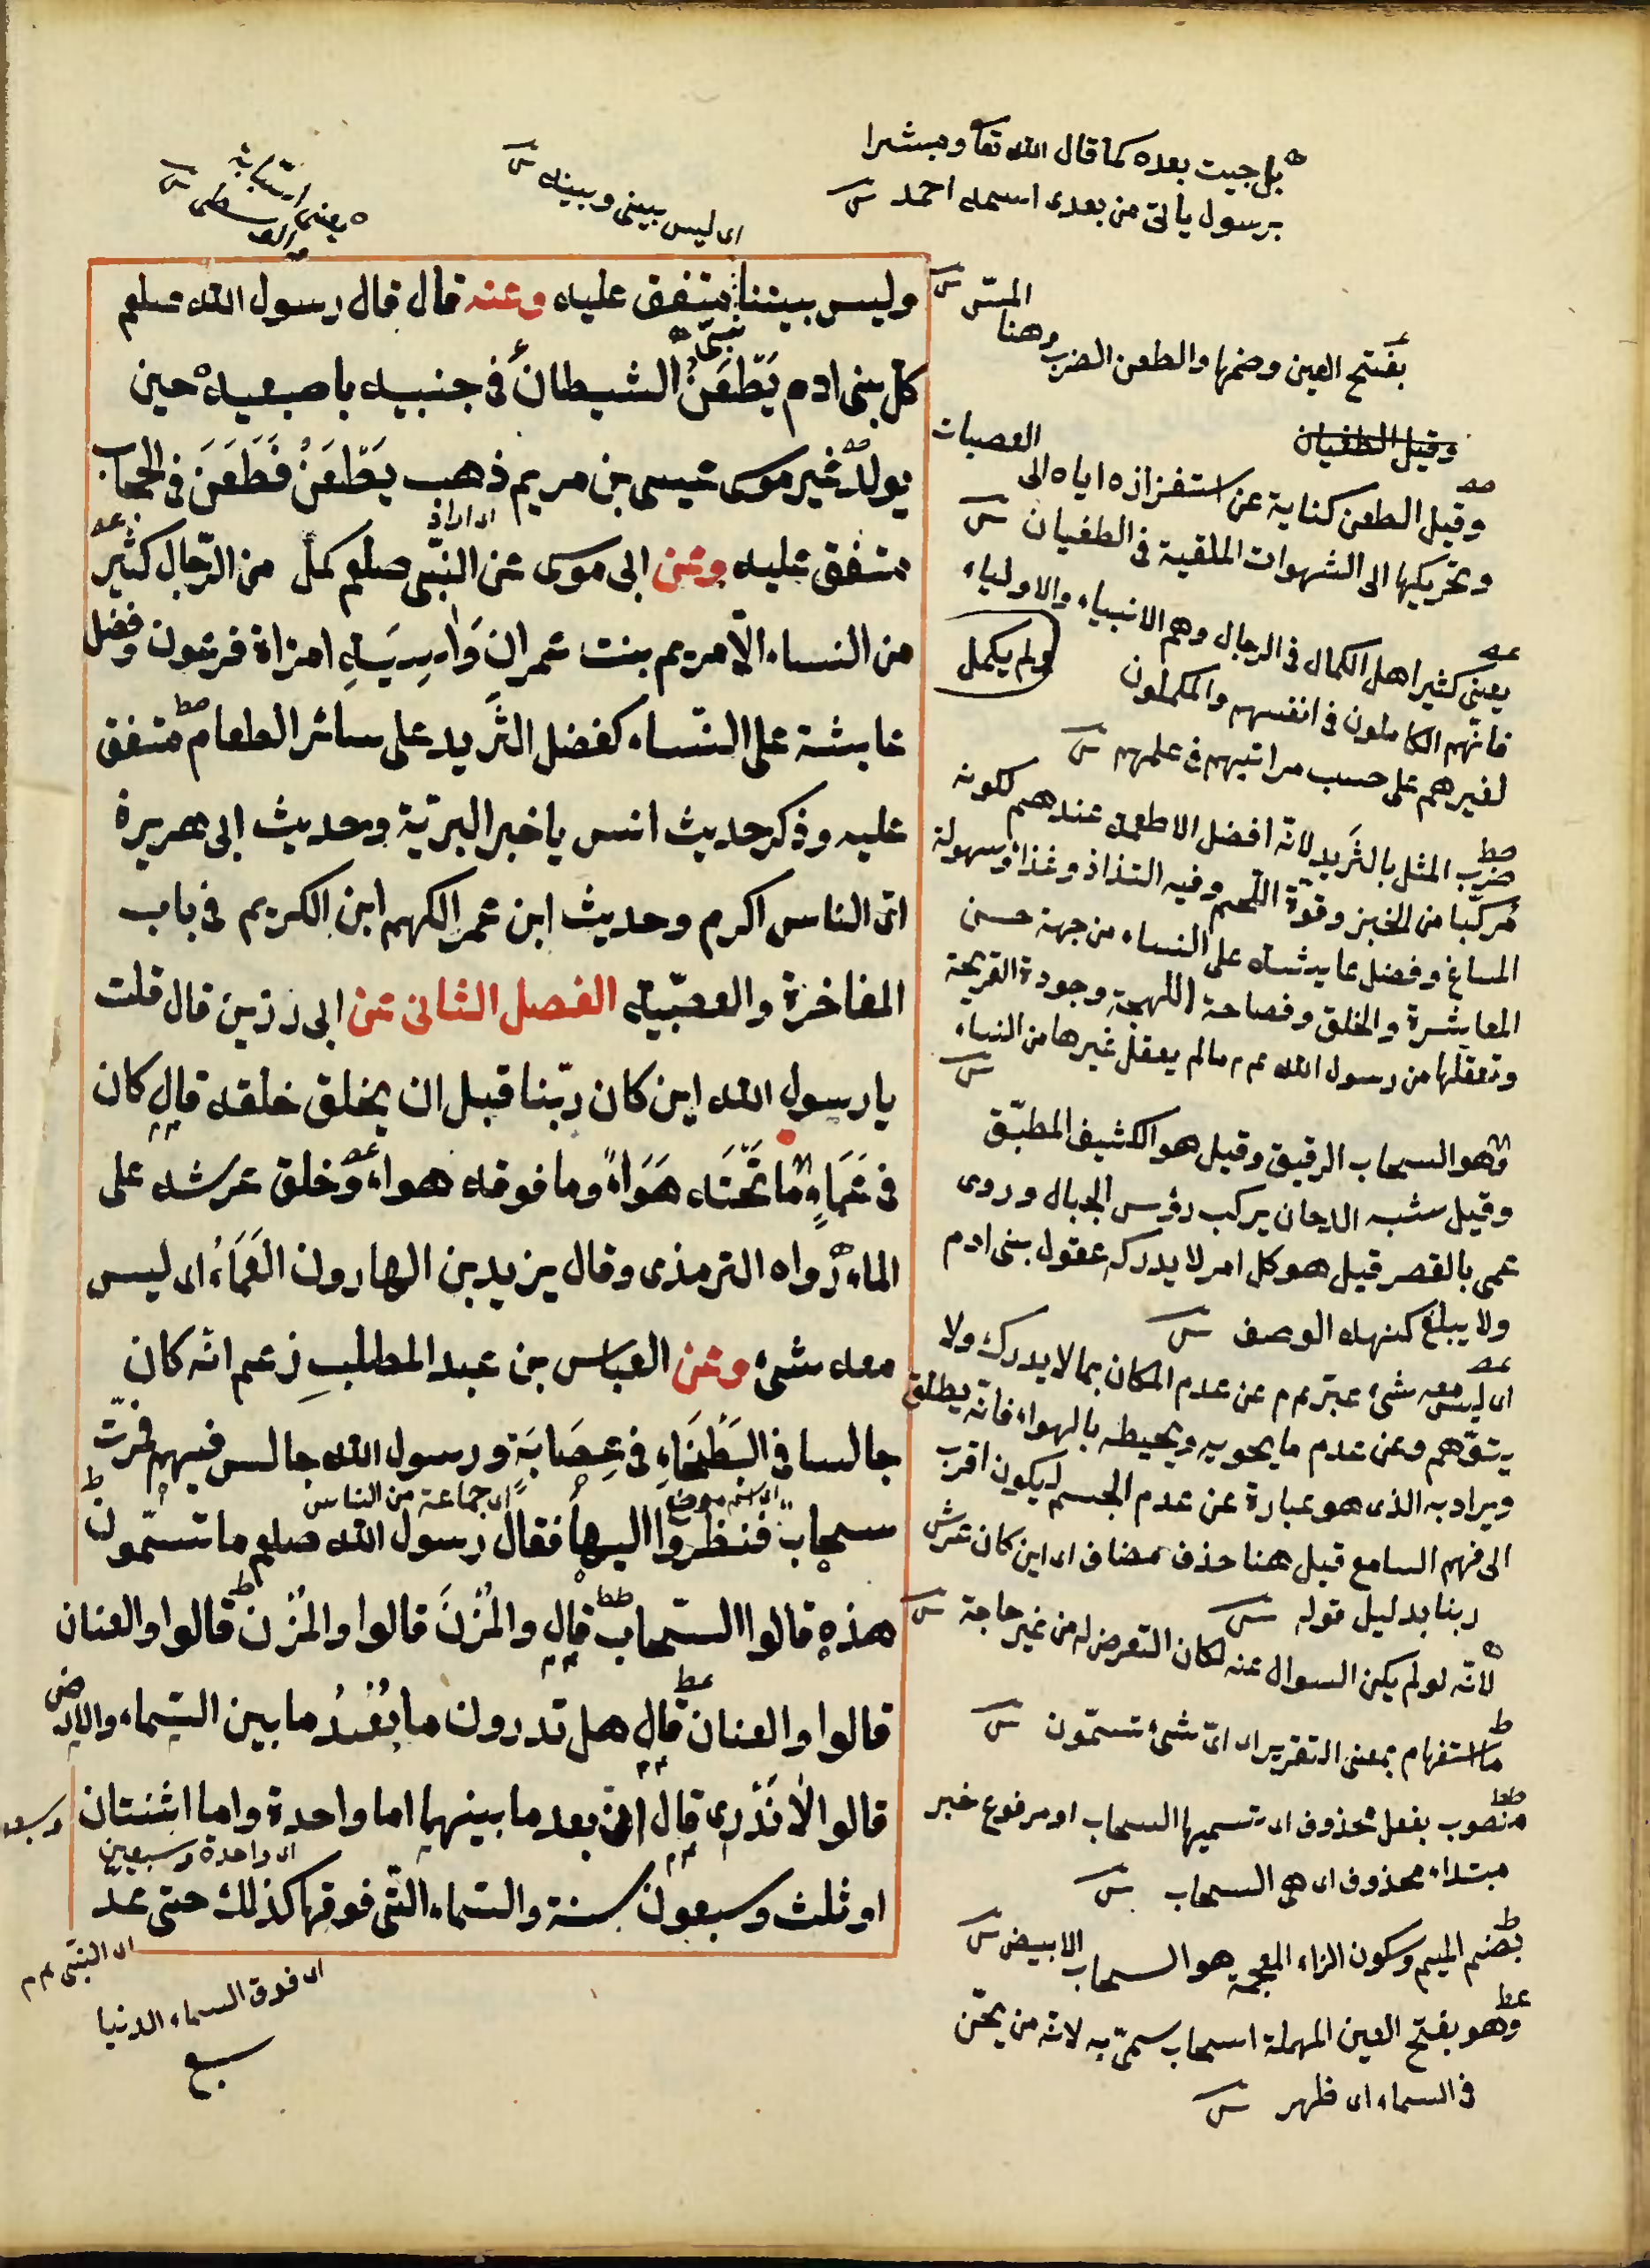 بل جيت بعده كما قال الله تعا ومبشرا
برسول يأتى من بعدى اسمه احمد
اى ليس بينى وبينه
وليس بيننا متفق عليه وعنه قال قال رسول الله صلعم
كل بنى ادم يَطْعَنُ الشيطان فى جنبيه باصبعيه حين
يولد غير موسى عيسى بن مريم ذهب يَطْعَنُ فَطَعَنَ فى الحجاب
متفق عليه وعن ابى موسى عن النبى صلعم كمل من الرجال كثير
من النساء الا مريم بنت عمران وَاٰسِيَةِ امراة فرعون وفضل
عايشة على النساء كفضل الثَّريد على سائر الطعام متفق
عليه وذكر حديث انس يا خير البرية وحديث ابى هريرة
اى الناس اكرم وحديث ابن عمر الكريم ابن الكريم فى باب
المفاخرة والعصبية الفصل الثانى عن ابى رزين قال قلت
يا رسول الله اين كان ربّنا قبل ان يخلق خلقه قال كان
فى عَمَاءٍ ما تَحْتَه هَوَاءً وما فوقه هواء وخلق عرشه على
الماء رواه الترمذى وقال يزيد بن الهارون العَمَاءُ اى ليس
معه شئ وعن العباس بن عبد المطلبِ زعم انه كان
جالسا فى البَطْحَاءِ فى عِصَابَةٍ ورسول الله جالس فيهم فمرّت
اى جماعة من الناس
سحابة فنظروا اليها فقال رسول الله صلعم ما تسمّون
هذه قالوا السّحاب قال والمُزْنَ قالوا والمُزْن قالوا والعنان
قالوا والعنان قال هل تدرون ما بُعْدُ ما بين السّماء والارض
قالوا لا نَدْرى قال ان بعد ما بينهما اما واحدة واما اثنتان
اى واحدة وسبعين
او ثلث وسبعون سنة والسّماء التى فوقها كذلك حتى عدّ
اى النبى عم
اى فوق السماء الدنيا
سبع
المسّ
بفتح العين وضمها والطعن الضرب وهنا
وقيل الطغيان
العصيان
وقيل الطعن كناية عن استفزازه اياه الى
وتحريكها الى الشهوات الملقية فى الطغيان
يعنى كثير اهل الكمال فى الرجال وهم الانبياء والاولياء
ولم يكمل
فانهم الكاملون فى انفسهم والمكملون
لغيرهم على حسب مراتبهم فى علمهم
ضرب المثل بالثَّريد لانّه افضل الاطعمة عندهم لكونه
مركّبا من الخبز وقوّة اللحم وفيه التذاذ وغذاء وسهولة
المساغ وفضل عايشه على النساء من جهة حسن
المعاشرة والخلق وفصاحة اللهجة وجودة القريحة
وتعقلها من رسول الله عم ما لم يعقل غيرها من النساء
وهو السحاب الرقيق وقيل هو الكثيف المطبّق
وقيل شبه الدخان يركب رؤس الجبال وروى
عمى بالقصر قيل هو كل امر لا يدركه عقول بنى ادم
ولا يبلغ كنهه الوصف
اى ليس معه شئ عبّر عم عن عدم المكان بما لا يدرك ولا
يتوّهم وعن عدم ما يحويه ويحيطه بالهواء فانه يطلق
ويراد به الذى هو عبارة عن عدم الجسم ليكون اقرب
الى فهم السامع قيل هنا حذف مضاف اى اين كان عرش
ربنا بدليل قوله
لانّه لو لم يكن السوال عنه لكان التعرض له من غير حاجة
ما استفهام بمعنى التقرير اى اىّ شئ تسمّون
منصوب بفعل محذوف اى تسميها السحاب او مرفوع خبر
مبتداء محذوف اى هى السحاب
بضم الميم وسكون الزاء المعجمة هو السحاب الابيض
وهو بفتح العين المهملة السحاب سمّى به لانه من يعنّ
فى السماء اى ظهر